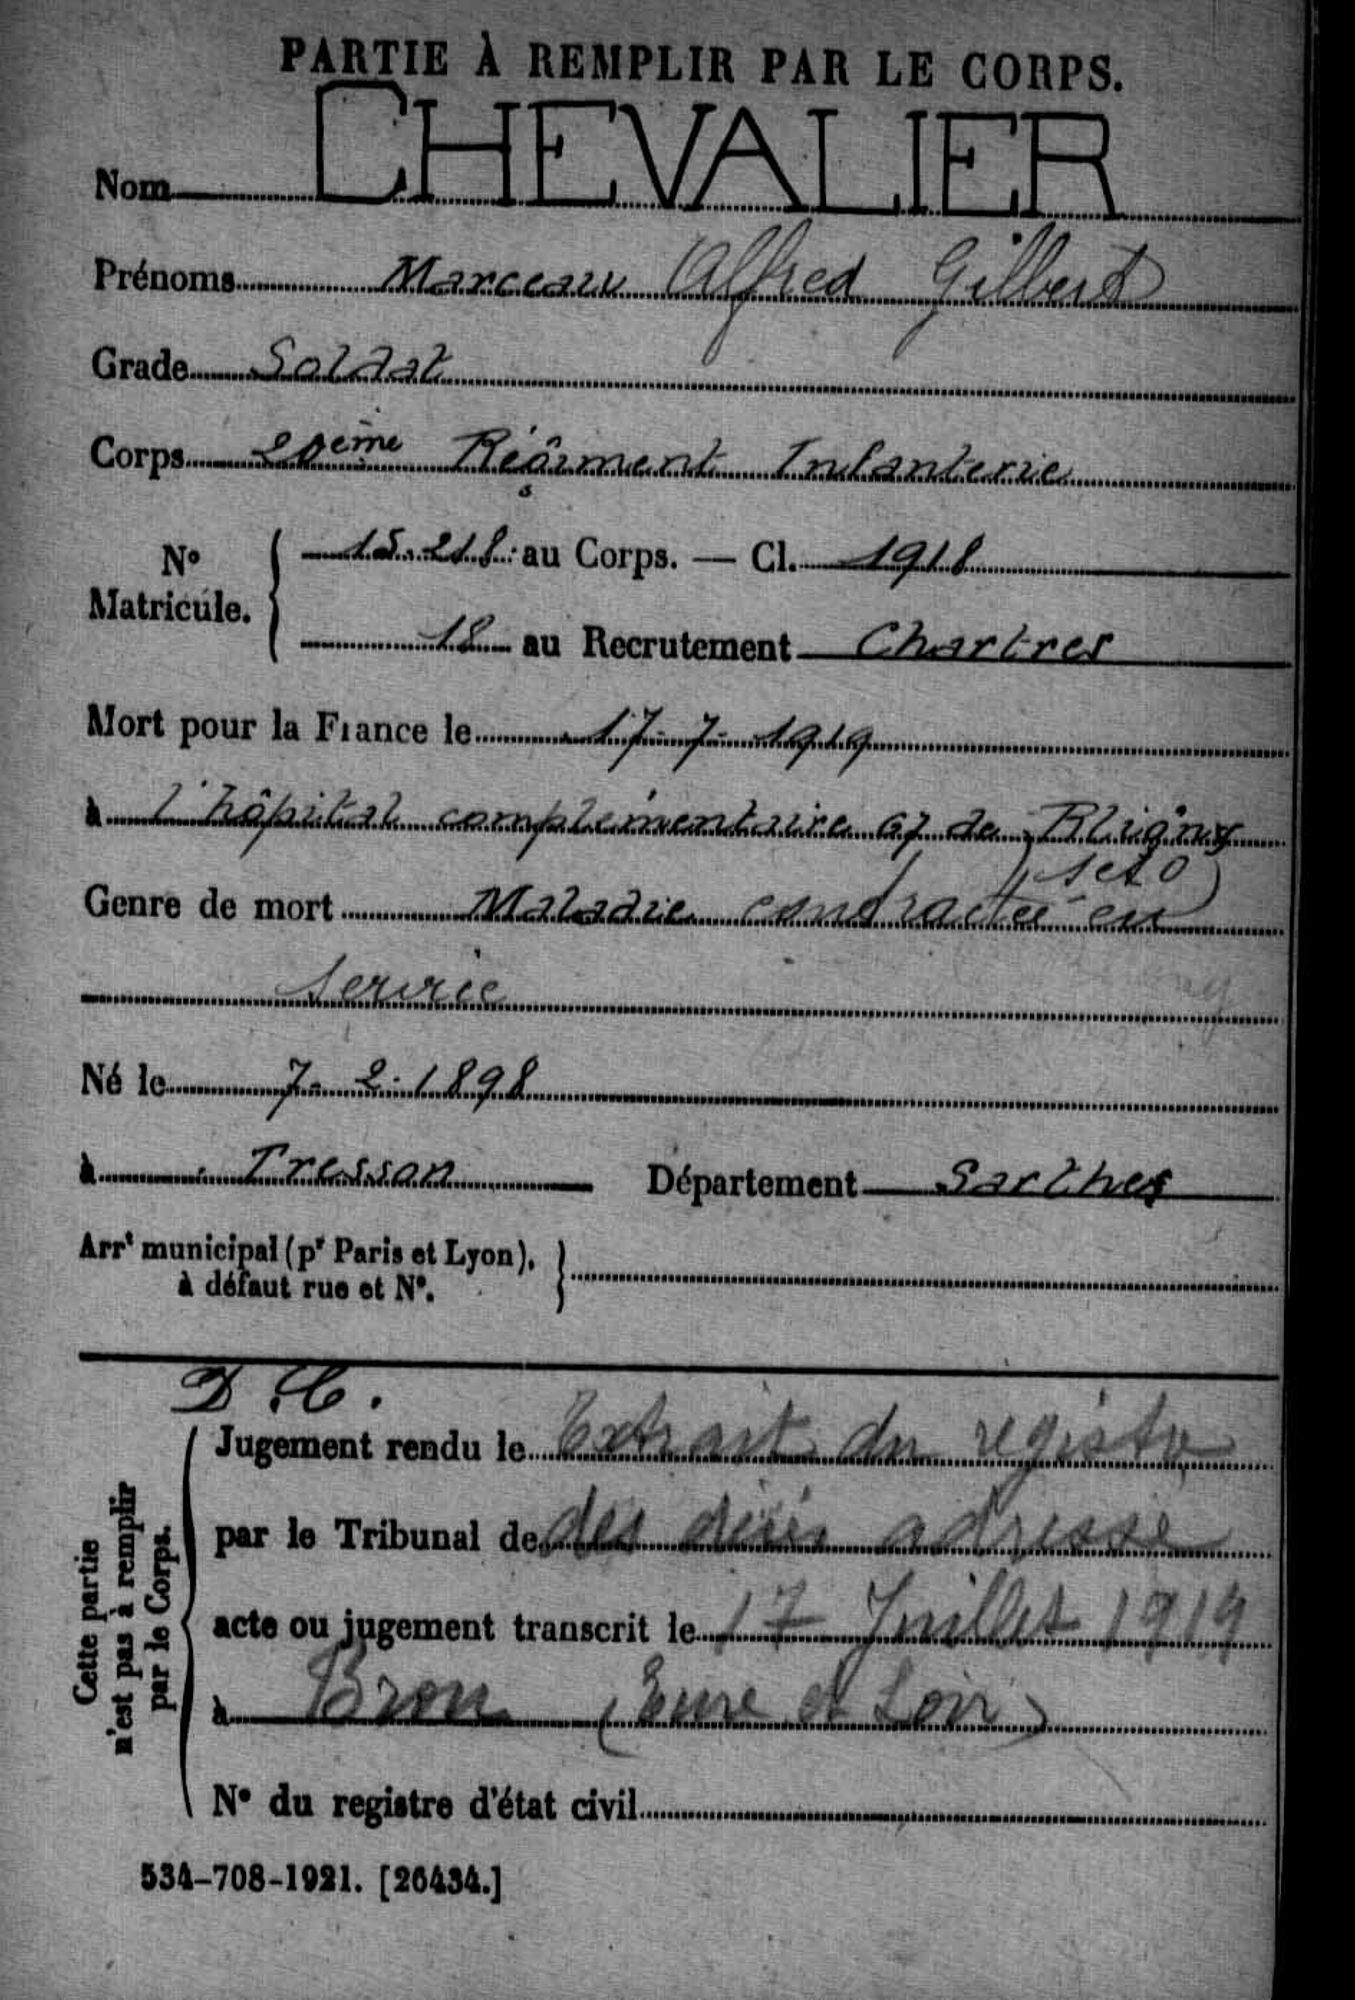 PARTIE À REMPLIR PAR LE CORPS.
Nom CHEVALIER
Prénoms Marceau Alfred Gilbert
Grade Soldat
Corps 20ème Régiment Infanterie
No Matricule. 15.218 au Corps. — Cl. 1918
18 au Recrutement Chartres
Mort pour la France le 17-7-1919
à l'hôpital complémentaire 67 de
S et O
Genre de mort Maladie contractée en
service
Né le 7-2-1898
à Tresson Département Sarthe
Arrt municipal (pr Paris et Lyon), à défaut rue et No.
D.C.
Cette partie n'est pas à remplir par le Corps.
Jugement rendu le Extrait du registre
par le Tribunal de des adresse
acte ou jugement transcrit le 17 Juillet 1919
à Brou (Eure et Loir)
No du registre d'état civil
534-708-1921. [26434.]